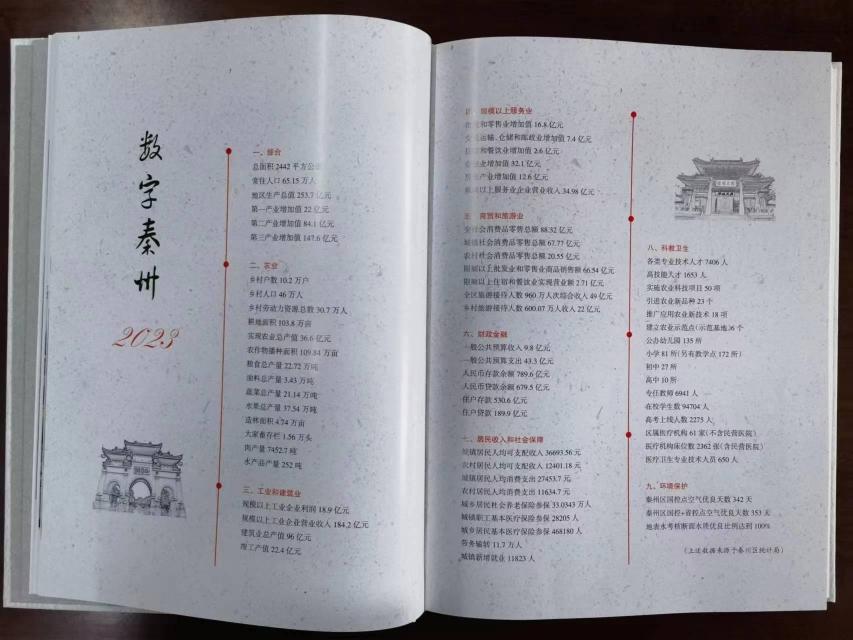 数字秦州
2023
一、综合
总面积 2442 平方公里
常住人口 65.15 万人
地区生产总值 253.7 亿元
第一产业增加值 22 亿元
第二产业增加值 84.1 亿元
第三产业增加值 147.6 亿元
二、农业
乡村户数 10.2 万户
乡村人口 46 万人
乡村劳动力资源总数 30.7 万人
耕地面积 103.8 万亩
实现农业总产值 36.6 亿元
农作物播种面积 109.84 万亩
粮食总产量 22.72 万吨
油料总产量 3.43 万吨
蔬菜总产量 21.14 万吨
水果总产量 37.54 万吨
造林面积 4.74 万亩
大家畜存栏 1.56 万头
肉产量 7452.7 吨
水产品产量 252 吨
三、工业和建筑业
规模以上工业企业利润 18.9 亿元
规模以上工业企业营业收入 184.2 亿元
建筑业总产值 96 亿元
竣工产值 22.4 亿元
四、规模以上服务业
和零售业增加值 16.8 亿元
运输、仓储和邮政业增加值 7.4 亿元
和餐饮业增加值 2.6 亿元
业增加值 32.1 亿元
产业增加值 12.6 亿元
以上服务业企业营业收入 34.98 亿元
五、商贸和旅游业
社会消费品零售总额 88.32 亿元
城镇社会消费品零售总额 67.77 亿元
农村社会消费品零售总额 20.55 亿元
限额以上批发业和零售业商品销售额 66.54 亿元
限额以上住宿和餐饮业实现营业额 2.71 亿元
全区旅游接待人数 960 万人次综合收入 49 亿元
乡村旅游接待人数 600.07 万人收入 22 亿元
六、财政金融
一般公共预算收入 9.8 亿元
一般公共预算支出 43.3 亿元
人民币存款余额 789.6 亿元
人民币贷款余额 679.5 亿元
住户存款 530.6 亿元
住户贷款 189.9 亿元
七、居民收入和社会保障
城镇居民人均可支配收入 36693.56 元
农村居民人均可支配收入 12401.18 元
城镇居民人均消费支出 27453.7 元
农村居民人均消费支出 11634.7 元
城乡居民社会养老保险参保 33.0343 万人
城镇职工基本医疗保险参保 28205 人
城乡居民基本医疗保险参保 468180 人
劳务输转 11.7 万人
城镇新增就业 11823 人
八、科教卫生
各类专业技术人才 7406 人
高技能人才 1653 人
实施农业科技项目 50 项
引进农业新品种 23 个
推广应用农业新技术 18 项
建立农业示范点(示范基地)6 个
公办幼儿园 135 所
小学 81 所(另有教学点 172 所)
初中 27 所
高中 10 所
专任教师 6941 人
在校学生数 94704 人
高考上线人数 2275 人
区属医疗机构 61 家(不含民营医院)
医疗机构床位数 2362 张(含民营医院)
医疗卫生专业技术人员 650 人
九、环境保护
秦州区国控点空气优良天数 342 天
秦州区国控+省控点空气优良天数 353 天
地表水考核断面水质优良比例达到 100%
(上述数据来源于秦州区统计局)